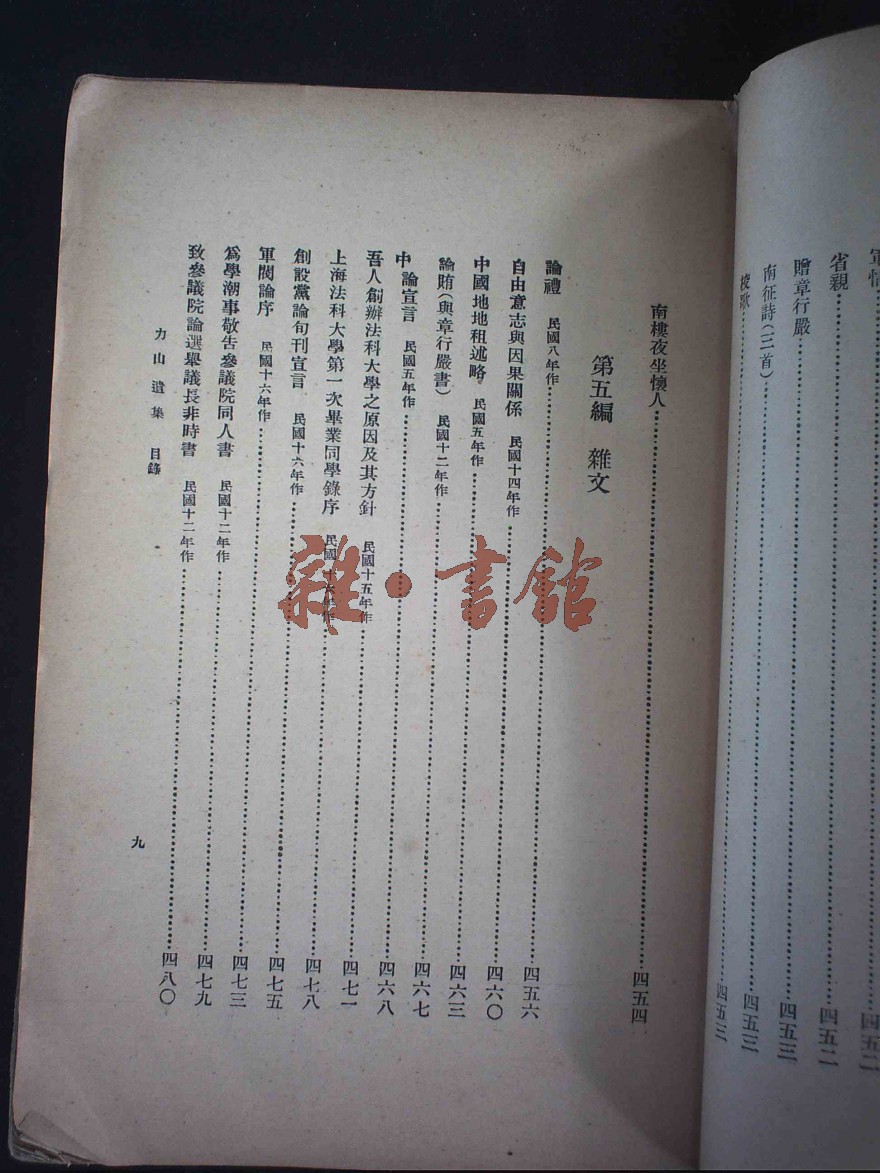 軍情……四五二
省親……四五二
贈章行嚴……四五三
南征詩(三首)……四五三
校歌……四五三
南樓夜坐懷人……四五四
第五編 雜文
論禮 民國八年作……四五六
自由意志與因果關係 民國十四年作……四六〇
中國地地租述略 民國五年作……四六三
論賄(與章行嚴書) 民國十二年作……四六七
中論宣言 民國五年作……四六八
吾人創辦法科大學之原因及其方針 民國十五年作……四七一
上海法科大學第一次畢業同學錄序 民國十六年作……四七八
創設黨論旬刊宣言 民國十六年作……四七五
軍閥論序 民國十六年作……四七三
爲學潮事敬告參議院同人書 民國十二年作……四七九
致參議院論選舉議長非時書 民國十二年作……四八〇
力山遺集 目錄
九
雜·書館